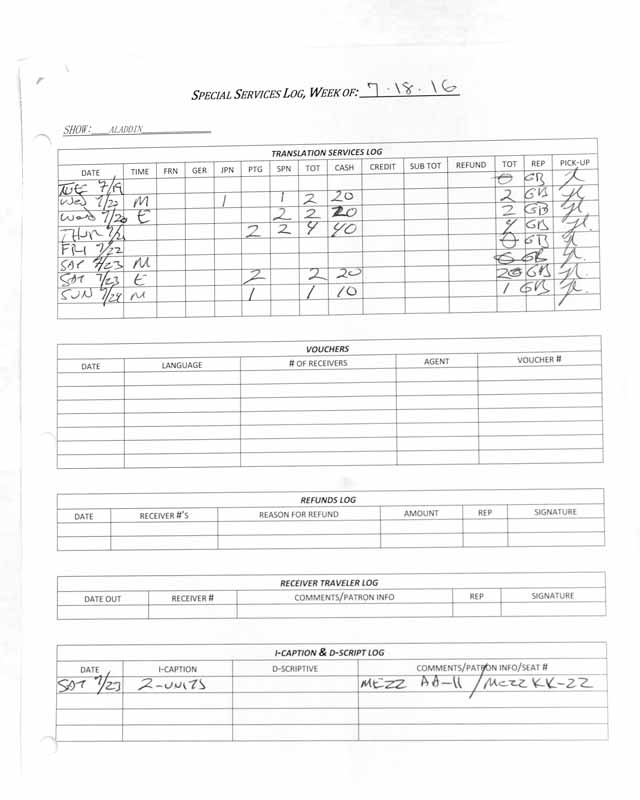 SPECIAL SERVICES LOG, WEEK OF: 7.18.16
SHOW: ALADDIN
TRANSLATION SERVICES LOG
DATE TIME FRN GER JPN PTG SPN TOT CASH CREDIT SUB TOT REFUND TOT REP PICK-UP
TUE 7/19 0 GB
WED 7/20 M 1 1 2 20 2 GB
WED 7/20 E 2 2 20 2 GB
THUR 7/21 2 2 4 40 4 GB
FRI 7/22 0 GB
SAT 7/23 M 0 GB
SAT 7/23 E 2 2 20 GB
SUN 7/24 M 1 1 10 1 GB
VOUCHERS
DATE LANGUAGE # OF RECEIVERS AGENT VOUCHER #
REFUNDS LOG
DATE RECEIVER #'S REASON FOR REFUND AMOUNT REP SIGNATURE
RECEIVER TRAVELER LOG
DATE OUT RECEIVER # COMMENTS/PATRON INFO REP SIGNATURE
I-CAPTION & D-SCRIPT LOG
DATE I-CAPTION D-SCRIPTIVE COMMENTS/PATRON INFO/SEAT #
SAT 7/23 2-UNITS MEZZ AA-11 / MEZZ KK-22